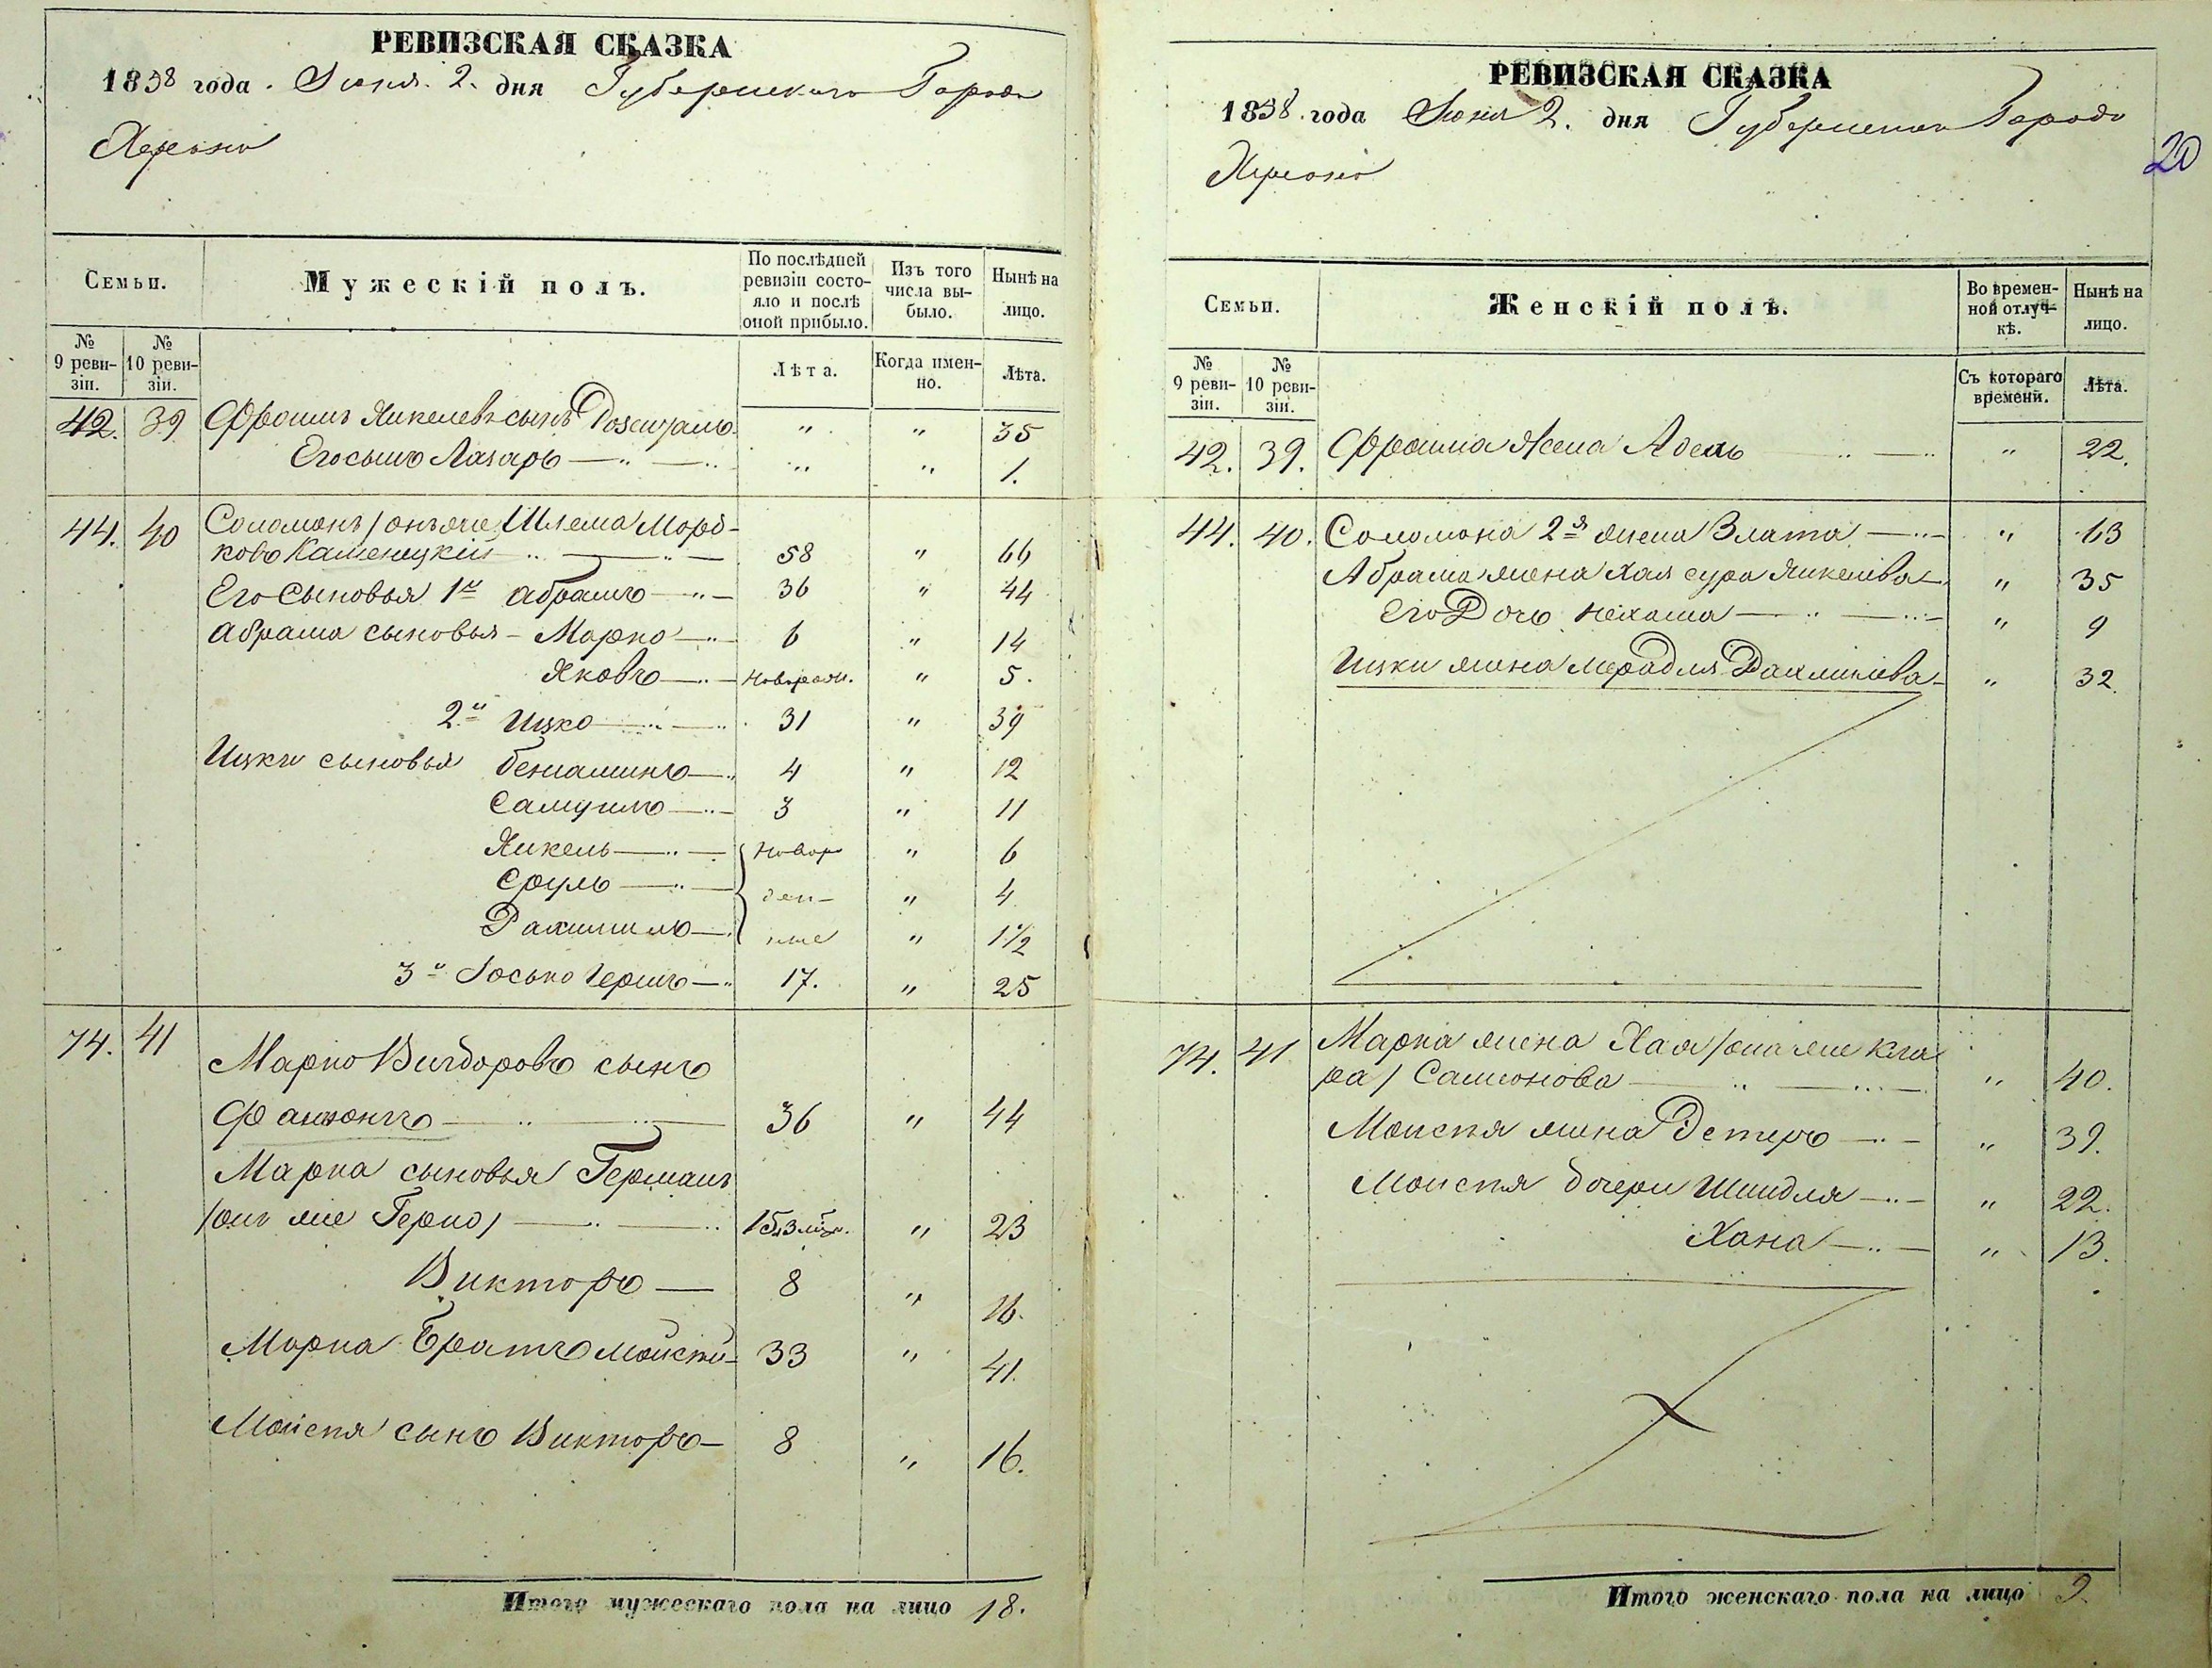 РЕВИЗСКАЯ СКАЗКА
1858 года. Іюня. 2. дня Губернскаго Города
Херсона
Семьи.
Мужескій полъ.
По послѣдней ревизіи состояло и послѣ оной прибыло.
Изъ того числа выбыло.
Нынѣ на лицо.
№ 9 ревизіи.
№ 10 ревизіи.
Лѣта.
Когда именно.
Лѣта.
42. 39 Фроимъ Янкелевъ сынъ " " 35
Его сынъ Лазарь " " 1.
44. 40 Соломонъ /онъ же/ Шлема Морд-
ковъ Каменецкій 58 " 66
Его Сыновья 1й Абрамъ 36 " 44
Абрама сыновья - Марко 6 " 14
Яковъ новорож. " 5.
2й Ицко 31 " 39
Ицки сыновья Беніаминъ 4 " 12
Самуилъ 3 " 11
Янкель новор " 6
Сруль ден- " 4
Рахмиль ные " 1 1/2
3й Іосько Гершъ 17. " 25
74. 41 Марко Вигдоровъ сынъ
36 " 44
Марка сыновья Германъ
/онъ же Герко/ " 23
Викторъ 8 " 16.
Марка Братъ Моисей 33 " 41.
Моисея сынъ Викторъ 8 " 16.
Итого мужескаго пола на лицо 18.
РЕВИЗСКАЯ СКАЗКА
1858. года Іюня 2. дня Губернскаго Города
Херсона
20
Семьи.
Женскій полъ.
Во временной отлучкѣ.
Нынѣ на лицо.
№ 9 ревизіи.
№ 10 ревизіи.
Съ котораго времени.
Лѣта.
42. 39. Фроима Жена Адель " 22.
44. 40. Соломона 2я жена Злата " 63
Абрама жена Хая Сура Янкелева " 35
Его Дочь Нехама " 9
Ицки жена 32.
74. 41 Марка жена Хая /она же Кла
ра/ Самсонова " 40.
Моисея жена Эстеръ " 39.
Моисея дочери Шейндля " 22.
Хана " 13.
Итого женскаго пола на лицо 9.